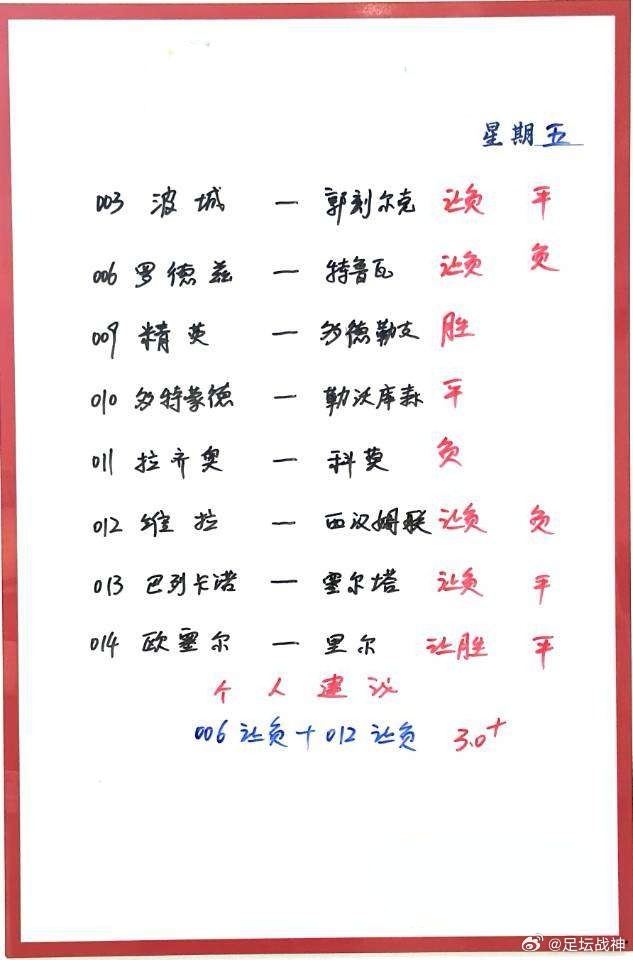 星期五
003 波城 — 郭刻尔克 让负 平
006 罗德兹 — 特鲁瓦 让负 负
009 精英 — 多德勒支 胜
010 多特蒙德 — 勒沃库森 平
011 拉齐奥 — 科莫 负
012 维拉 — 西汉姆联 让负 负
013 巴列卡诺 — 塞尔塔 让负 平
014 欧塞尔 — 里尔 让胜 平
个人建议
006 让负 + 012 让负 3.0+
@足坛战神